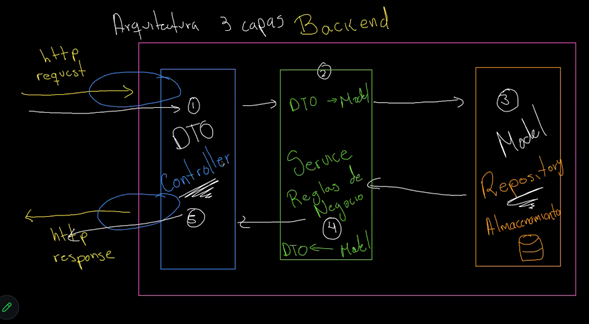 Arquitectura 3 capas Backend
http
request
1
DTO
Controller
5
http
response
2
DTO → Model
Service
Reglas de
Negocio
4
DTO ← Model
3
Model
Repository
Almacenamiento